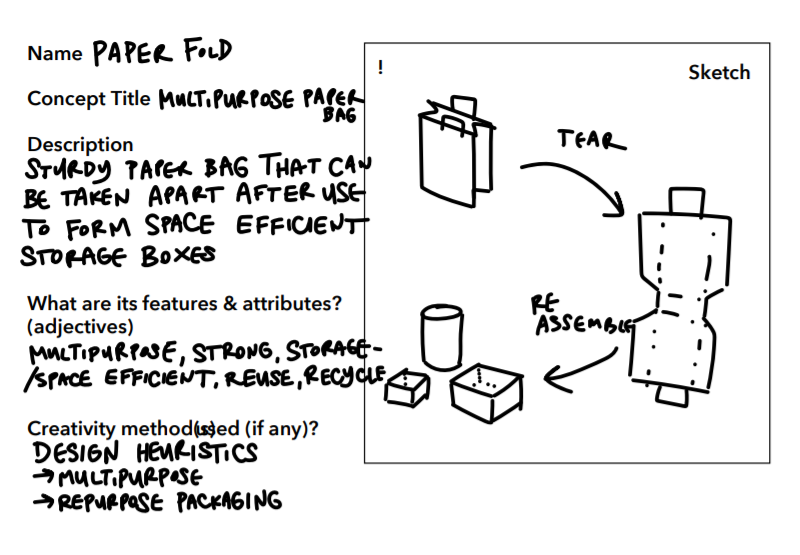 Name PAPER FOLD
Concept Title MULTIPURPOSE PAPER
BAG
Description
STURDY PAPER BAG THAT CAN
BE TAKEN APART AFTER USE
TO FORM SPACE EFFICIENT
STORAGE BOXES
What are its features & attributes?
(adjectives)
MULTIPURPOSE, STRONG, STORAGE-
/SPACE EFFICIENT, REUSE, RECYCLE
Creativity method(s)used (if any)?
DESIGN HEURISTICS
→ MULTIPURPOSE
→ REPURPOSE PACKAGING
!
Sketch
TEAR
RE
ASSEMBLE